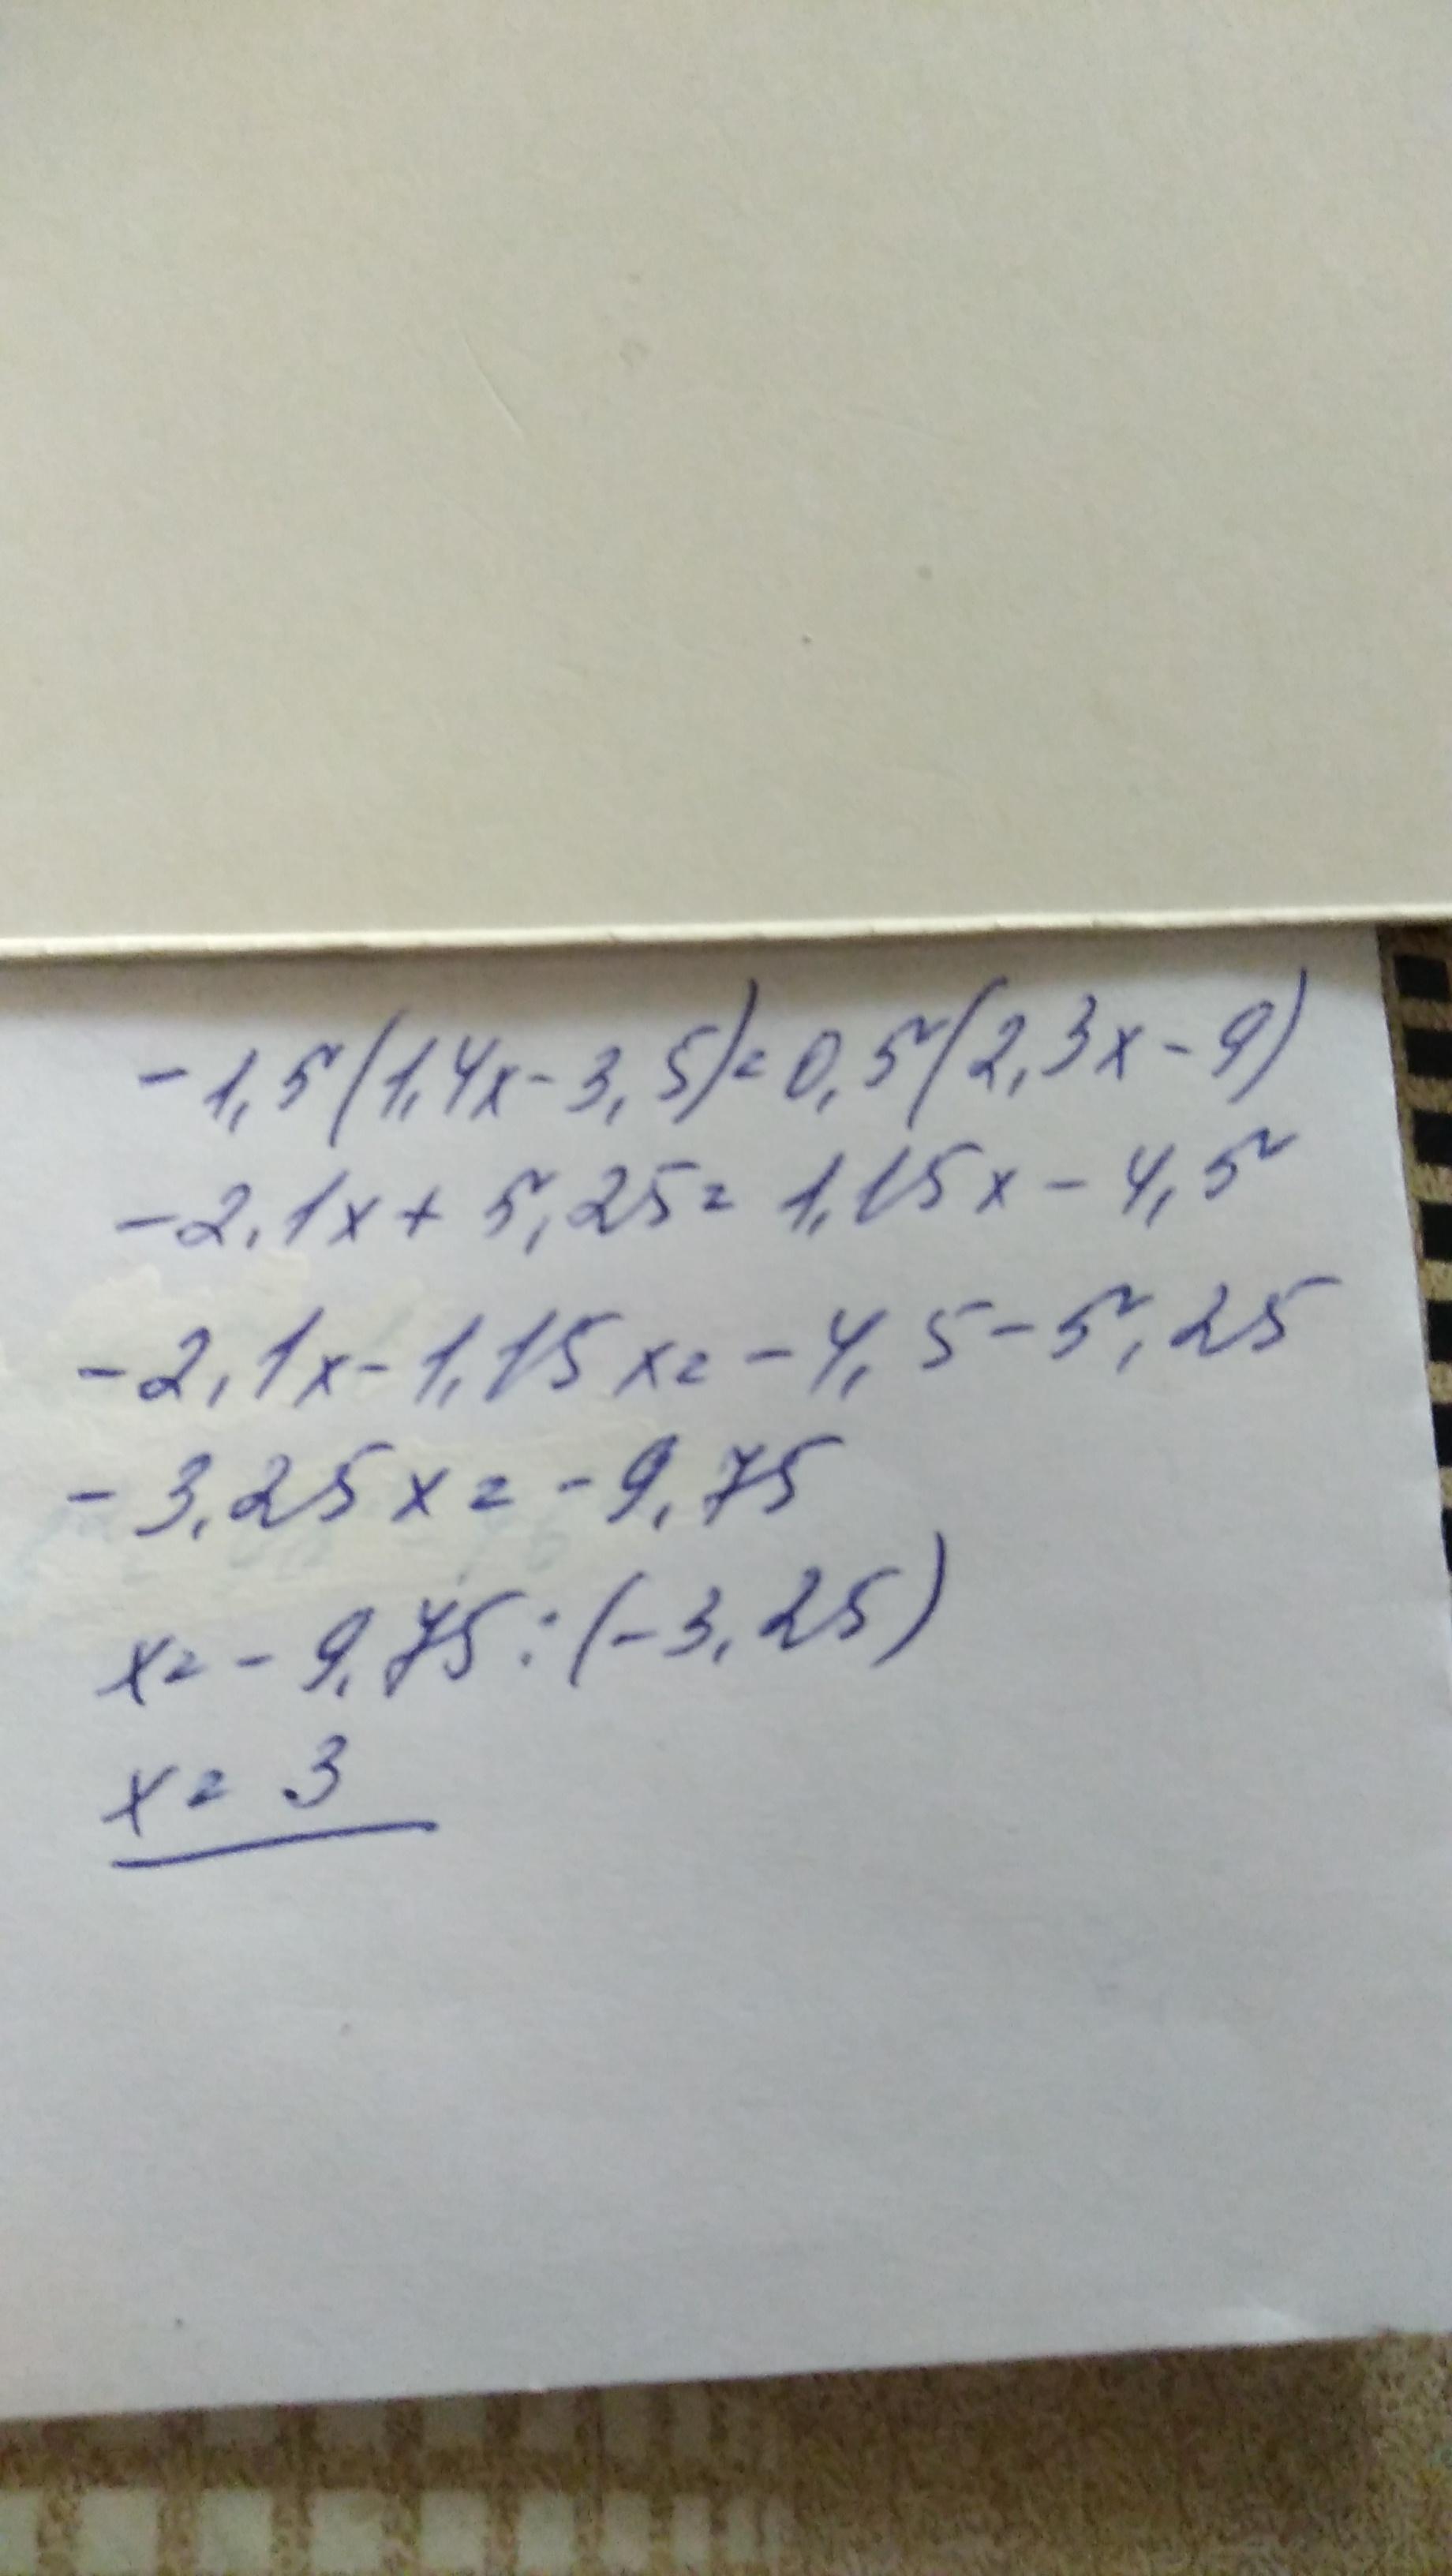 -1,5(1,4x-3,5)=0,5(2,3x-9)
-2,1x+5,25=1,15x-4,5
-2,1x-1,15x=-4,5-5,25
-3,25x=-9,75
x=-9,75:(-3,25)
x=3